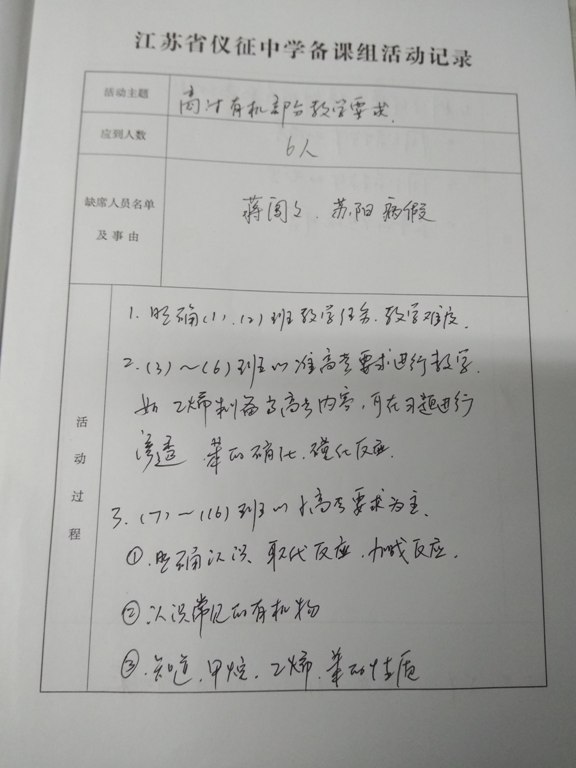 江苏省仪征中学备课组活动记录
活动主题
有机部分教学要求.
应到人数
6人
缺席人员名单
及事由
蒋国文、苏阳 病假
活动过程
1. 明确(1)、(2)班教学任务、教学难度.
2. (3)～(6)班以准高考要求进行教学.
如乙烯制备为高考内容,可在习题进行
渗透 苯的硝化、磺化反应.
3. (7)～(16)班以小高考要求为主.
①.明确认识、取代反应、加成反应.
②.认识常见的有机物
③.知道.甲烷、乙烯、苯的性质